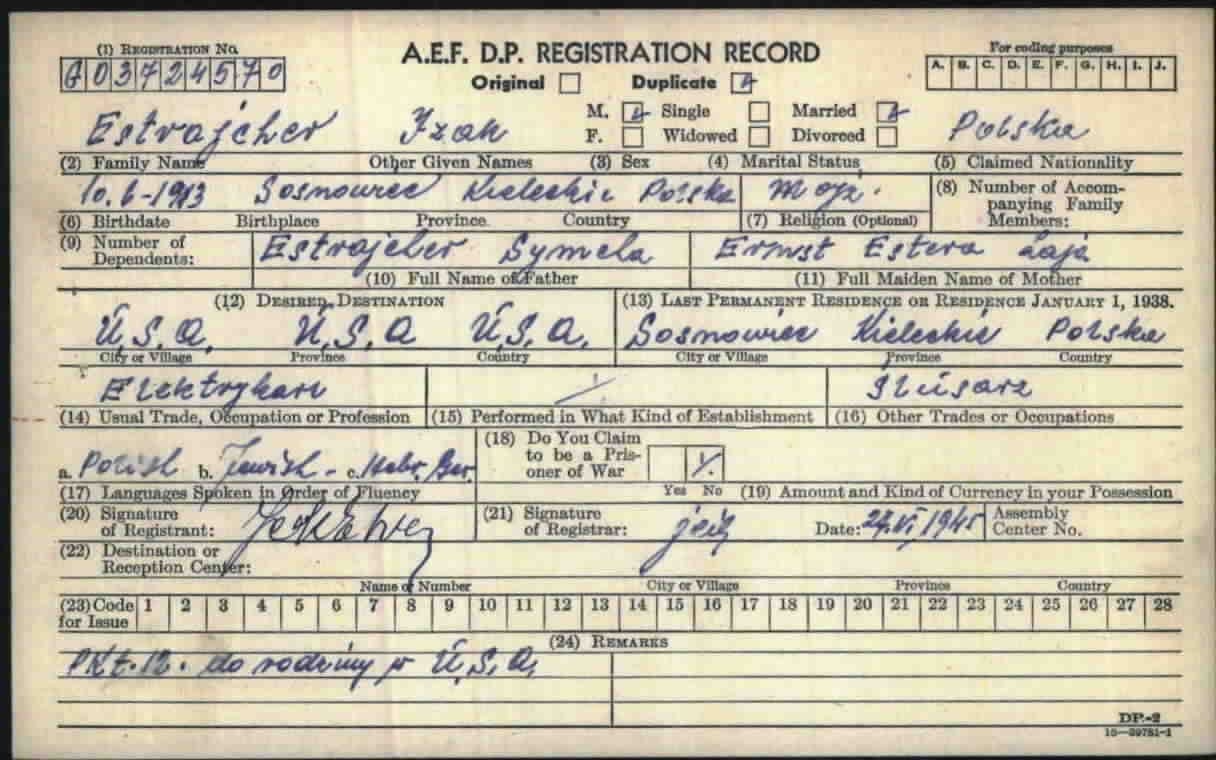 (1) REGISTRATION NO.
G03724570
A.E.F. D.P. REGISTRATION RECORD
Original Duplicate
For coding purposes
A. B. C. D. E. F. G. H. I. J.
M. Single Married
Estrajcher Izak Polska
F. Widowed Divorced
(2) Family Name Other Given Names (3) Sex (4) Marital Status (5) Claimed Nationality
10.6-1913 Sosnowiec Kieleckie Polska Mojż.
(8) Number of Accompanying Family Members:
(6) Birthdate Birthplace Province Country (7) Religion (Optional)
(9) Number of Dependents:
Estrajcher Symcha Ernst Estera Łaja
(10) Full Name of Father (11) Full Maiden Name of Mother
(12) DESIRED DESTINATION (13) LAST PERMANENT RESIDENCE OR RESIDENCE JANUARY 1, 1938.
U.S.A. U.S.A U.S.A. Sosnowiec Kieleckie Polska
City or Village Province Country City or Village Province Country
Elektrykarz Ślusarz
(14) Usual Trade, Occupation or Profession (15) Performed in What Kind of Establishment (16) Other Trades or Occupations
a. Polish b. Jewish - c. Hebr. Ger.
(18) Do You Claim to be a Prisoner of War
Yes No
(17) Languages Spoken in Order of Fluency (19) Amount and Kind of Currency in your Possession
(20) Signature of Registrant:
(21) Signature of Registrar:
Date: VI 1945
Assembly Center No.
(22) Destination or Reception Center:
Name or Number City or Village Province Country
(23) Code for Issue 1 2 3 4 5 6 7 8 9 10 11 12 13 14 15 16 17 18 19 20 21 22 23 24 25 26 27 28
(24) REMARKS
Pkt. 12. do rodziny w U.S.A.
DP-2
16—39781-1